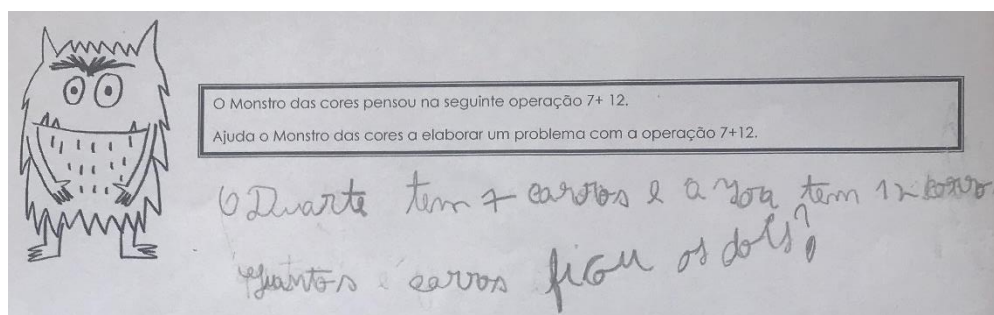 O Monstro das cores pensou na seguinte operação 7+ 12.
Ajuda o Monstro das cores a elaborar um problema com a operação 7+12.
O Duarte tem 7 carros e a tem 12
quantos carros ficou os dois?